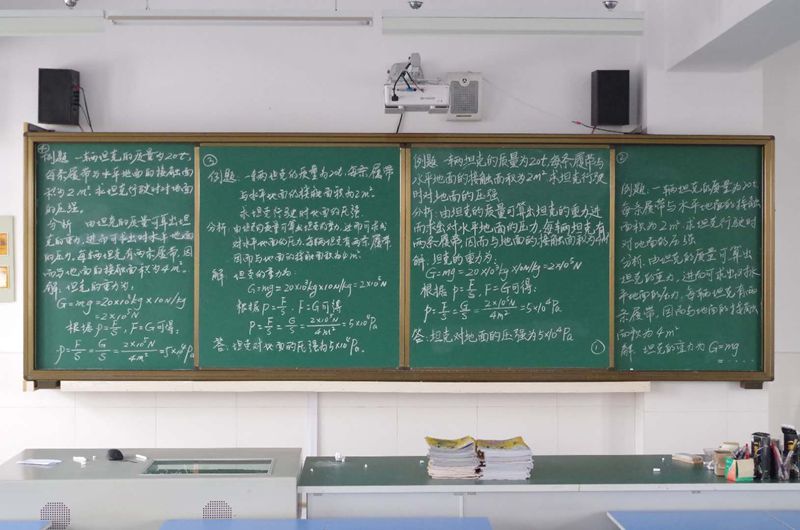 ④
例题 一辆坦克的质量为20t,
每条履带与水平地面的接触面
积为2m². 求坦克行驶时对地面
的压强。
分析 由坦克的质量可算出坦
克的重力, 进而可求出对水平地面
的压力, 每辆坦克有两条履带, 因
而与地面的接触面积为4m².
解. 坦克的重力为:
G=mg=20×10³kg×10N/kg
=2×10⁵N
根据 p=F/S, F=G可得:
p=F/S=G/S=2×10⁵N/4m²=5×10⁴Pa
②
例题. 一辆坦克的质量为20t, 每条履带
与水平地面的接触面积为2m².
求坦克行驶时对地面的压强.
分析: 由坦克的质量可算出坦克的重力, 进而可求出
对水平地面的压力, 每辆坦克有两条履带,
因而与地面的接触面积为4m².
解 坦克的重力为:
G=mg=20×10³kg×10N/kg=2×10⁵N
根据p=F/S, F=G可得
p=F/S=G/S=2×10⁵N/4m²=5×10⁴Pa
答: 坦克对地面的压强为5×10⁴Pa。
例题 一辆坦克的质量为20t, 每条履带与
水平地面的接触面积为2m². 求坦克行驶
时对地面的压强
分析: 由坦克的质量可算出坦克的重力, 进
而求出对水平地面的压力, 每辆坦克有
两条履带, 因而与地面的接触面积为4m²
解. 坦克的重力为:
G=mg=20×10³kg×10N/kg=2×10⁵N
根据 p=F/S, F=G可得:
p=F/S=G/S=2×10⁵N/4m²=5×10⁴Pa
答: 坦克对地面的压强为5×10⁴Pa
①
③
例题. 一辆坦克的质量为20t.
每条履带与水平地面的接触
面积为2m². 求坦克行驶时
对地面的压强
分析: 由坦克的质量可算出
坦克的重力, 进而可求出对水
平地面的压力, 每辆坦克有两
条履带, 因而与地面的接触
面积为4m²
解 坦克的重力为G=mg
= ……